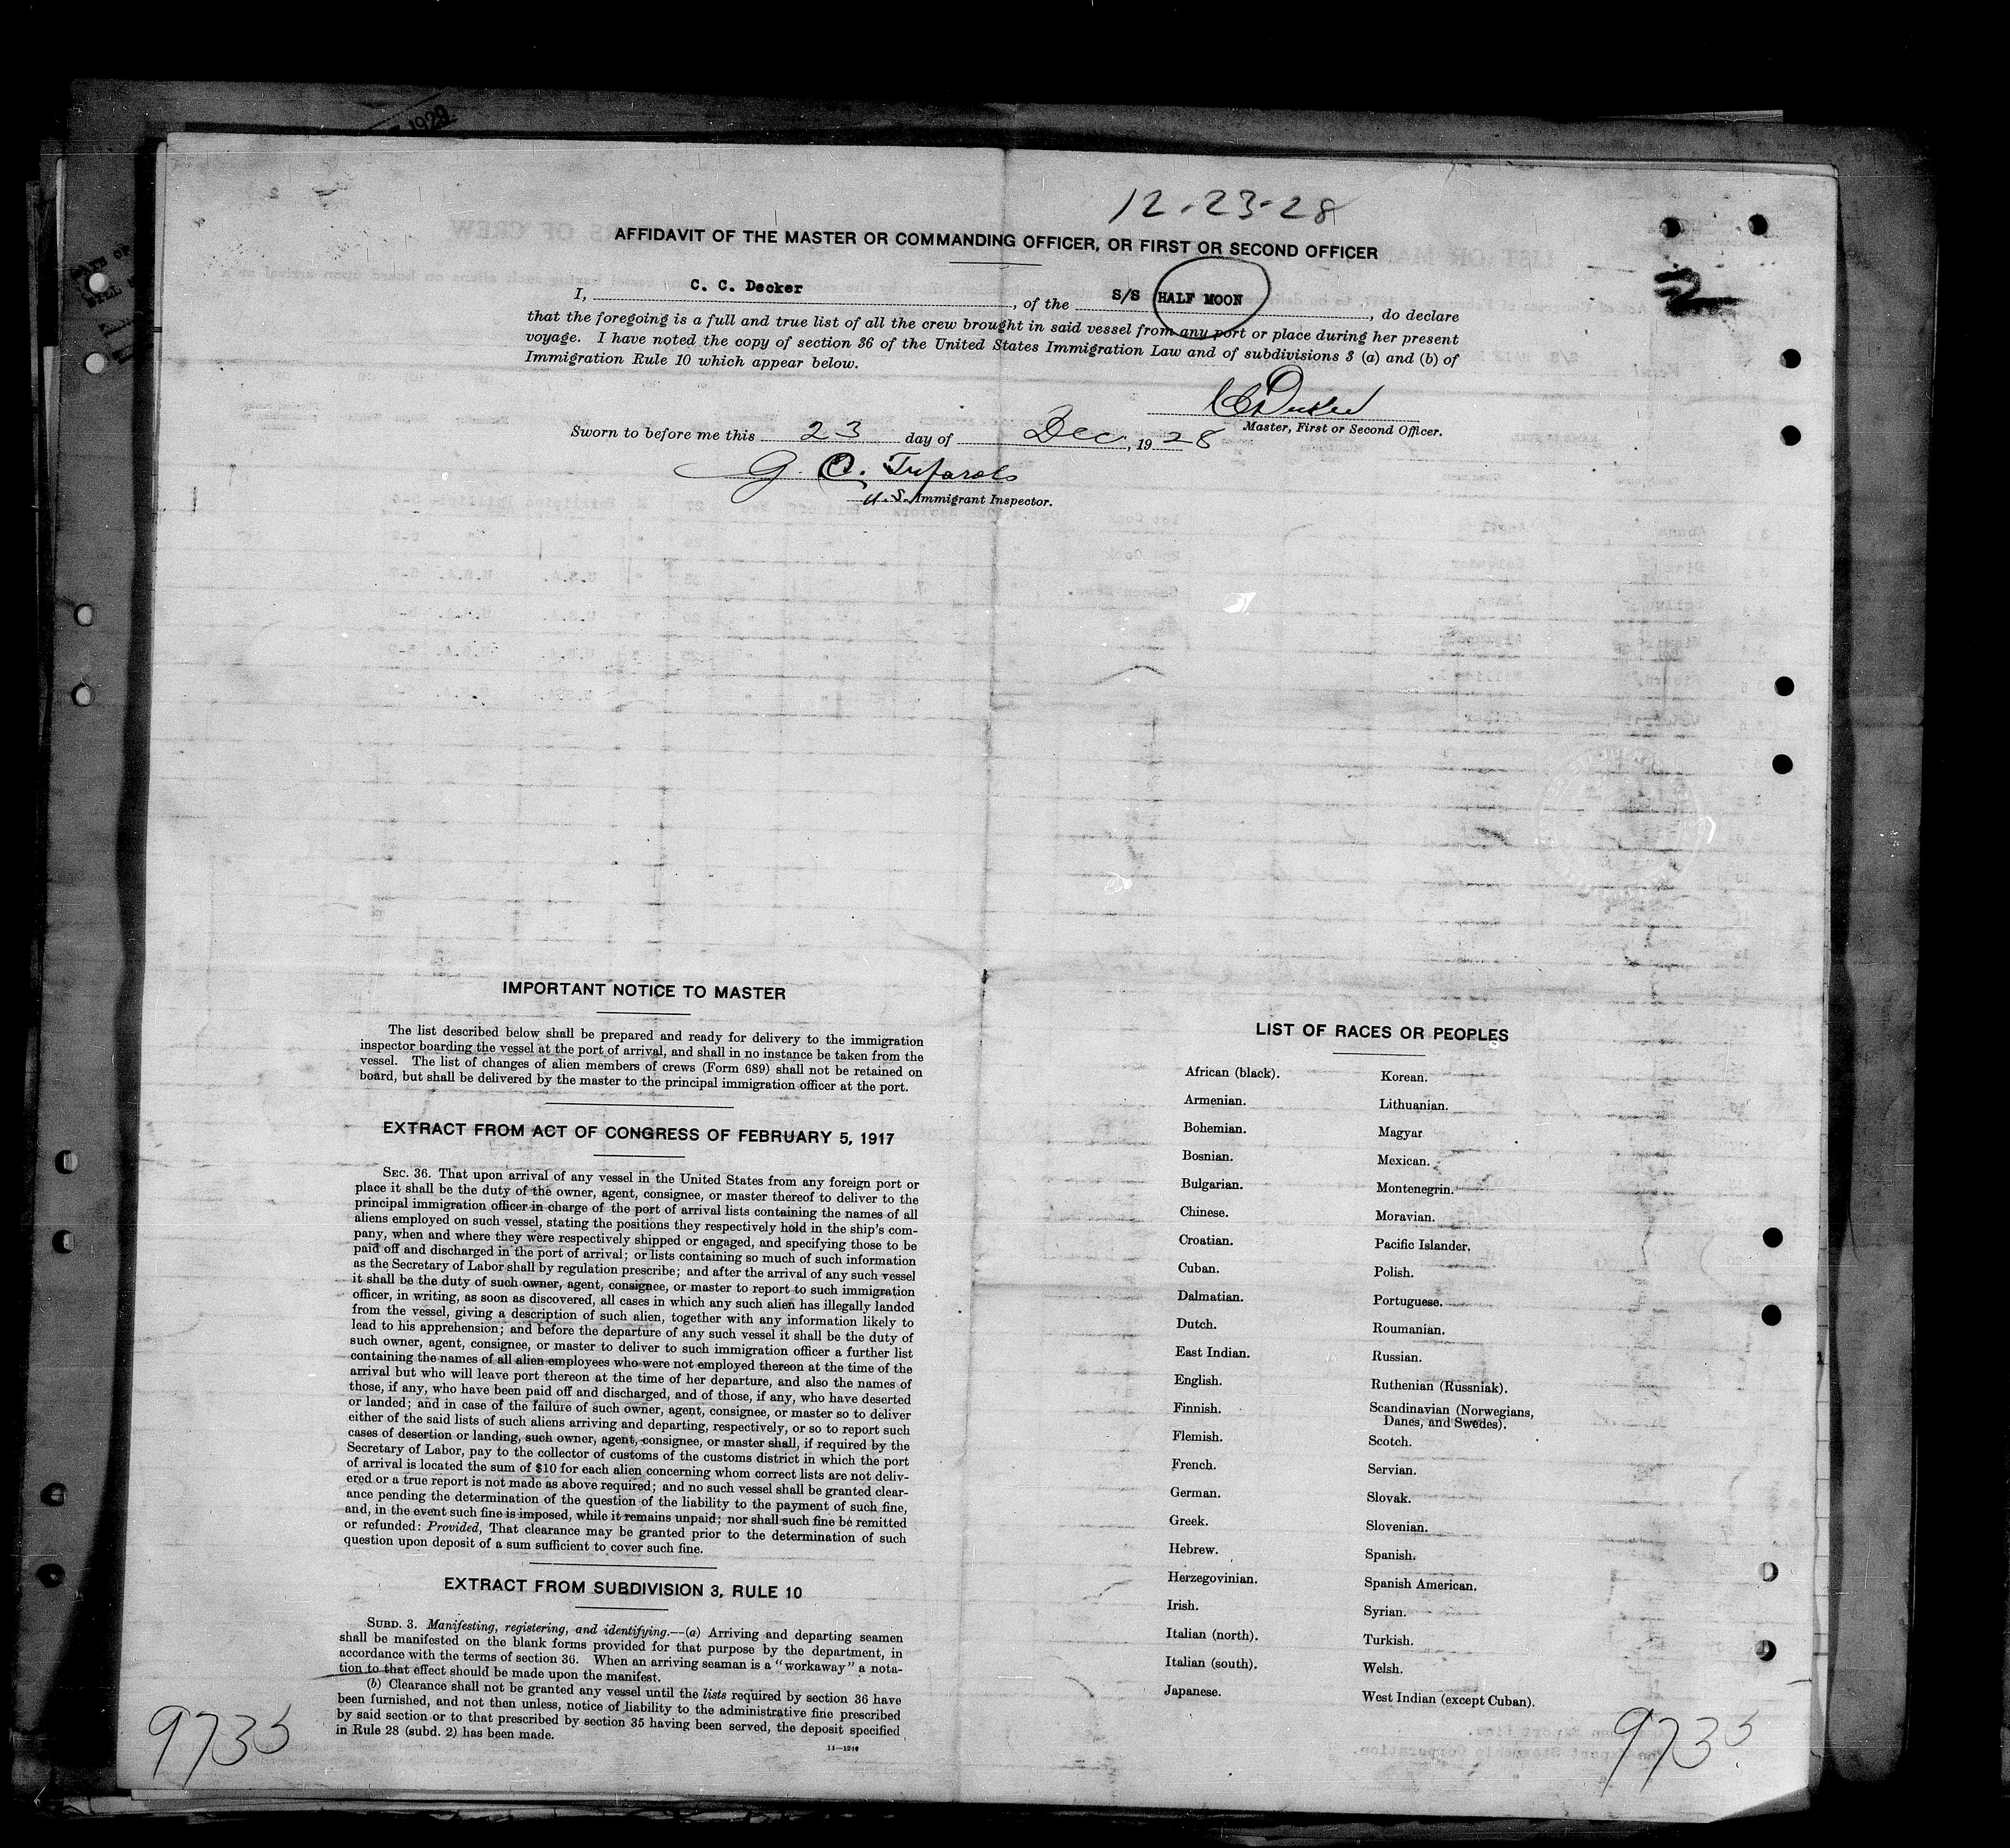 1929
12-23-28
AFFIDAVIT OF THE MASTER OR COMMANDING OFFICER, OR FIRST OR SECOND OFFICER
I, C. C. Decker, of the S/S HALF MOON, do declare
that the foregoing is a full and true list of all the crew brought in said vessel from any port or place during her present
voyage. I have noted the copy of section 36 of the United States Immigration Law and of subdivisions 3 (a) and (b) of
Immigration Rule 10 which appear below.
CC Decker
Master, First or Second Officer.
Sworn to before me this 23 day of Dec, 1928
G. C.
U.S. Immigrant Inspector.
IMPORTANT NOTICE TO MASTER
The list described below shall be prepared and ready for delivery to the immigration
inspector boarding the vessel at the port of arrival, and shall in no instance be taken from the
vessel. The list of changes of alien members of crews (Form 689) shall not be retained on
board, but shall be delivered by the master to the principal immigration officer at the port.
EXTRACT FROM ACT OF CONGRESS OF FEBRUARY 5, 1917
SEC. 36. That upon arrival of any vessel in the United States from any foreign port or
place it shall be the duty of the owner, agent, consignee, or master thereof to deliver to the
principal immigration officer in charge of the port of arrival lists containing the names of all
aliens employed on such vessel, stating the positions they respectively hold in the ship's com-
pany, when and where they were respectively shipped or engaged, and specifying those to be
paid off and discharged in the port of arrival; or lists containing so much of such information
as the Secretary of Labor shall by regulation prescribe; and after the arrival of any such vessel
it shall be the duty of such owner, agent, consignee, or master to report to such immigration
officer, in writing, as soon as discovered, all cases in which any such alien has illegally landed
from the vessel, giving a description of such alien, together with any information likely to
lead to his apprehension; and before the departure of any such vessel it shall be the duty of
such owner, agent, consignee, or master to deliver to such immigration officer a further list
containing the names of all alien employees who were not employed thereon at the time of the
arrival but who will leave port thereon at the time of her departure, and also the names of
those, if any, who have been paid off and discharged, and of those, if any, who have deserted
or landed; and in case of the failure of such owner, agent, consignee, or master so to deliver
either of the said lists of such aliens arriving and departing, respectively, or so to report such
cases of desertion or landing, such owner, agent, consignee, or master shall, if required by the
Secretary of Labor, pay to the collector of customs of the customs district in which the port
of arrival is located the sum of $10 for each alien concerning whom correct lists are not deliv-
ered or a true report is not made as above required; and no such vessel shall be granted clear-
ance pending the determination of the question of the liability to the payment of such fine,
and, in the event such fine is imposed, while it remains unpaid; nor shall such fine be remitted
or refunded: Provided, That clearance may be granted prior to the determination of such
question upon deposit of a sum sufficient to cover such fine.
EXTRACT FROM SUBDIVISION 3, RULE 10
SUBD. 3. Manifesting, registering, and identifying.—(a) Arriving and departing seamen
shall be manifested on the blank forms provided for that purpose by the department, in
accordance with the terms of section 36. When an arriving seaman is a "workaway" a nota-
tion to that effect should be made upon the manifest.
(b) Clearance shall not be granted any vessel until the lists required by section 36 have
been furnished, and not then unless, notice of liability to the administrative fine prescribed
by said section or to that prescribed by section 35 having been served, the deposit specified
in Rule 28 (subd. 2) has been made.
LIST OF RACES OR PEOPLES
African (black).
Armenian.
Bohemian.
Bosnian.
Bulgarian.
Chinese.
Croatian.
Cuban.
Dalmatian.
Dutch.
East Indian.
English.
Finnish.
Flemish.
French.
German.
Greek.
Hebrew.
Herzegovinian.
Irish.
Italian (north).
Italian (south).
Japanese.
Korean.
Lithuanian.
Magyar
Mexican.
Montenegrin.
Moravian.
Pacific Islander.
Polish.
Portuguese.
Roumanian.
Russian.
Ruthenian (Russniak).
Scandinavian (Norwegians,
Danes, and Swedes).
Scotch.
Servian.
Slovak.
Slovenian.
Spanish.
Spanish American.
Syrian.
Turkish.
Welsh.
West Indian (except Cuban).
9735
9735